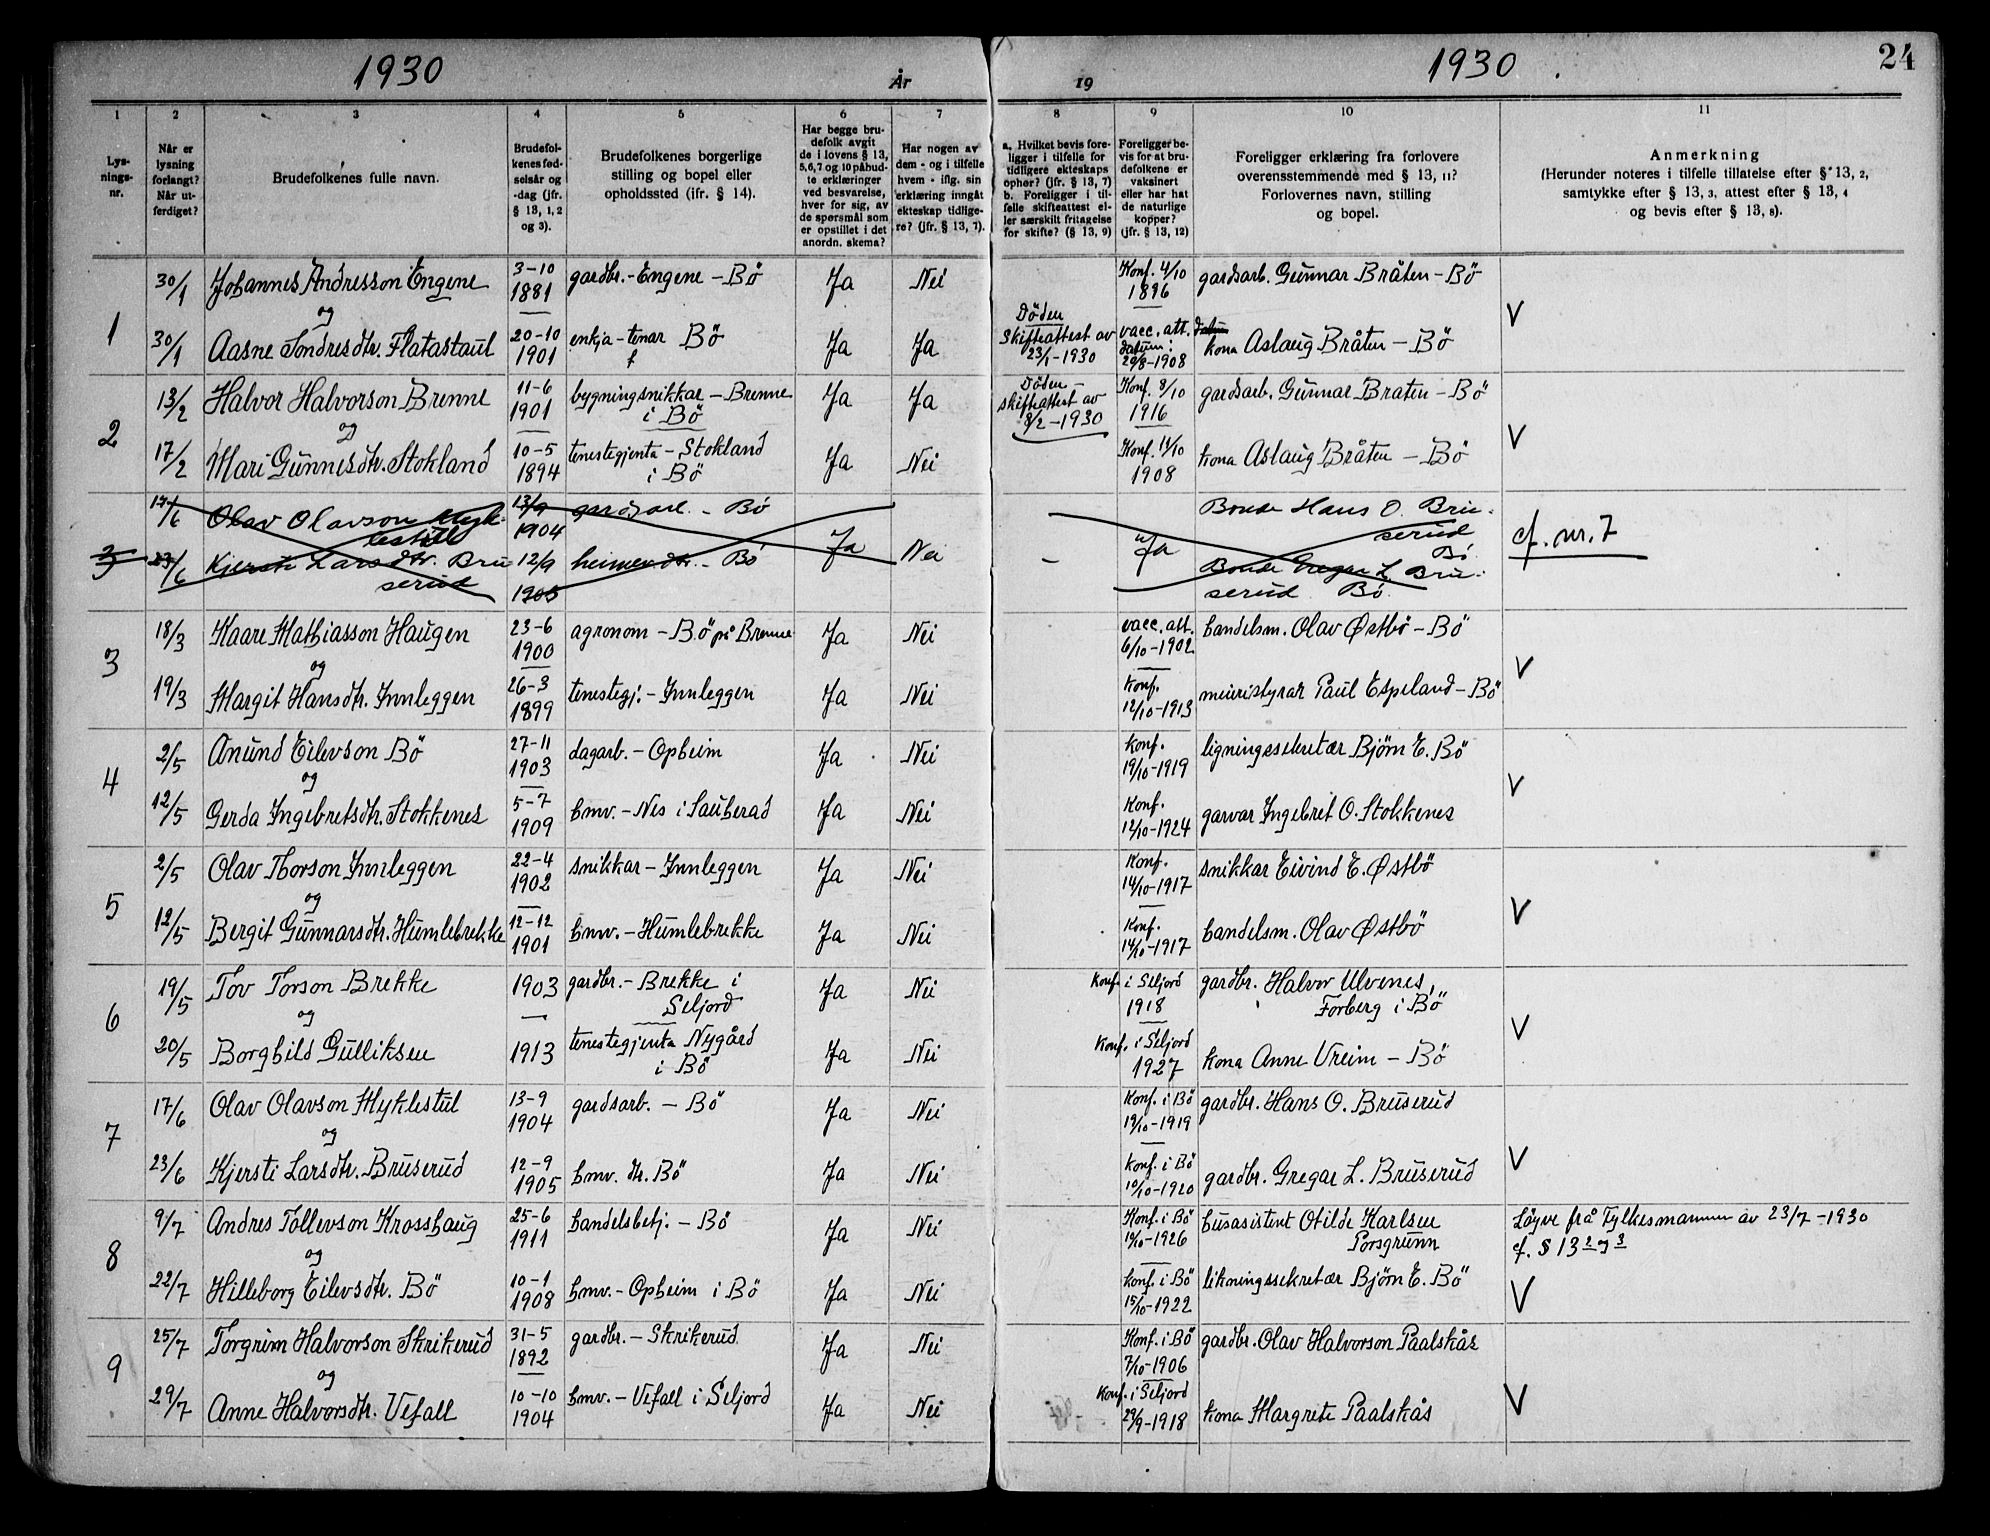 1930
År
19
1930
24
1
2
3
4
5
6
7
8
9
10
11
Lys-
nings-
nr.
Når er
lysning
forlangt?
Når ut-
ferdiget?
Brudefolkenes fulle navn.
Brudefol-
kenes fød-
selsår og
-dag (jfr.
§ 13, 1, 2
og 3).
Brudefolkenes borgerlige
stilling og bopel eller
opholdssted (ifr. § 14).
Har begge bru-
defolk avgit
de i lovens § 13,
5,6,7 og 10 påbud-
te erklæringer
ved besvarelse,
hver for sig, av
de spørsmål som
er opstillet i det
anordn. skema?
Har nogen av
dem - og i tilfelle
hvem - iflg. sin
erklæring inngåt
ekteskap tidlige-
re? (jfr. § 13, 7).
a. Hvilket bevis fore-
ligger i tilfelle for
tidligere ekteskaps
ophør? (jfr. § 13, 7)
b. Foreligger i til-
felle skifteattest el-
ler særskilt fritagelse
for skifte? (§ 13, 9)
Foreligger be-
vis for at bru-
defolkene er
vaksinert
eller har hat
de naturlige
kopper?
(jfr. § 13, 12)
Foreligger erklæring fra forlovere
overensstemmende med § 13, 11?
Forlovernes navn, stilling
og bopel.
Anmerkning
(Herunder noteres i tilfelle tillatelse efter § 13, 2,
samtykke efter § 13, 3, attest efter § 13, 4
og bevis efter § 13, 8).
1
30/1 Johannes Andresson Engene 3-10 1881 gardbr. - Engene - Bö Ja Nei Konf. 4/10 1896 gardsarb. Gunnar Bråten - Bö
og
30/1 Aasne Tondresdtr. Flatastaul 20-10 1901 enkja - tenar Bö Ja Ja Döden Skifteattest av 23/1-1930 vacc. att. datum: 29/8-1908 kona Aslaug Bråten - Bö V
2
13/2 Halvor Halvorson Brenne 11-6 1901 bygningsnikkar - Brenne i Bö Ja Ja Döden - skifteattest av 8/2-1930 Konf. 8/10 1916 gardsarb. Gunnar Bråten - Bö
og
17/2 Mari Gunnesdtr. Stokland 10-5 1894 tenestegjenta - Stokland i Bö Ja Nei Konf. 11/10 1908 kona Aslaug Bråten - Bö V
3
17/6 Olav Olavson Myklestul 13/9 1904 gardsarb. - Bø Ja Nei - Ja Bonde Hans O. Bruserud Bø cf. nr. 7
23/6 Kjersti Larsdtr. Bruserud 12/9 1905 heimevdtr. - Bø Bonde Gregar L. Bruserud Bø
3
18/3 Kaare Mathiasson Haugen 23-6 1900 agronom - Bö på Brenne Ja Nei vacc. att. 6/10-1902 handelsm. Olav Østbö - Bö
og
19/3 Margit Hansdtr. Innleggen 26-3 1899 tenestegj. - Innleggen Ja Nei Konf. 12/10-1913 meieristyrar Paul Espeland - Bö V
4
2/5 Anund Eilevson Bö 27-11 1903 dagarb. - Opheim Ja Nei Konf. 19/10-1919 ligningssekretær Bjørn E. Bö
og
12/5 Gerda Ingebretsdtr. Stokkenes 5-7 1909 hmv. - Nes i Sauherad Ja Nei Konf. 12/10-1924 garvar Ingebret O. Stokkenes V
5
2/5 Olav Thorson Innleggen 22-4 1902 snikkar - Innleggen Ja Nei Konf. 14/10-1917 snikkar Eivind E. Østbö
og
12/5 Bergit Gunnarsdtr. Humlebrekke 12-12 1901 hmv. - Humlebrekke Ja Nei Konf. 14/10-1917 handelsm. Olav Østbö V
6
19/5 Tov Torson Brekke 1903 gardbr. - Brekke i Seljord Ja Nei Konf. i Seljord 1918 gardbr. Halvor Ulvenes, Forberg i Bö
og
20/5 Borghild Gulliksen 1913 tenestegjenta Nygård i Bö Ja Nei Konf. i Seljord 1927 kona Anne Vreim - Bö V
7
17/6 Olav Olavson Myklestul 13-9 1904 gardsarb. - Bö Ja Nei Konf. i Bö 19/10-1919 gardbr. Hans O. Bruserud
og
23/6 Kjersti Larsdtr. Bruserud 12-9 1905 hmv. dtr. Bö Ja Nei Konf. i Bö 10/10-1920 gardbr. Gregar L. Bruserud V
8
9/7 Andres Tollevson Krosshaug 25-6 1911 handelsbetj. - Bö Ja Nei Konf. i Bö 10/10-1926 husasistent Otilde Karlsen Porsgrunn Löyve frå Fylkesmannen av 23/7-1930 cf. § 13 2 og 3
og
22/7 Hilleborg Eilevsdtr. Bö 10-1 1908 hmv. - Opheim i Bö Ja Nei Konf. i Bö 15/10-1922 likningssekretær Bjørn E. Bö V
9
25/7 Torgrim Halvorson Skrikerud 31-5 1892 gardbr. - Skrikerud Ja Nei Konf. i Bö 7/10-1906 gardbr. Olav Halvorson Paalskås
og
29/7 Anne Halvorsdtr. Vefall 10-10 1904 hmv. - Vefall i Seljord Ja Nei Konf. i Seljord 29/9-1918 kona Margrete Paalskås V